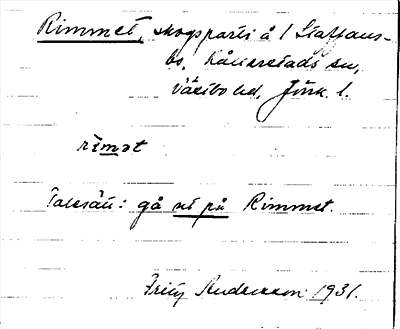 Rimmet, skogsparti å 1 Staffans-
bo, Kållerstads sn,
Västbo hd, Jönk. l.
rimət
Talesätt: gå ut på Rimmet.
Fritz Andersson 1931.